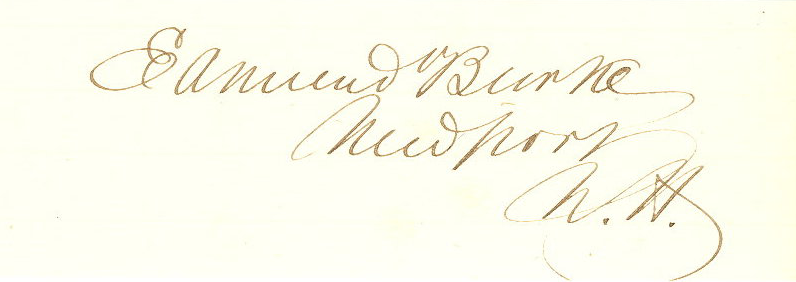 Edmund Burke
Newport
N. H.